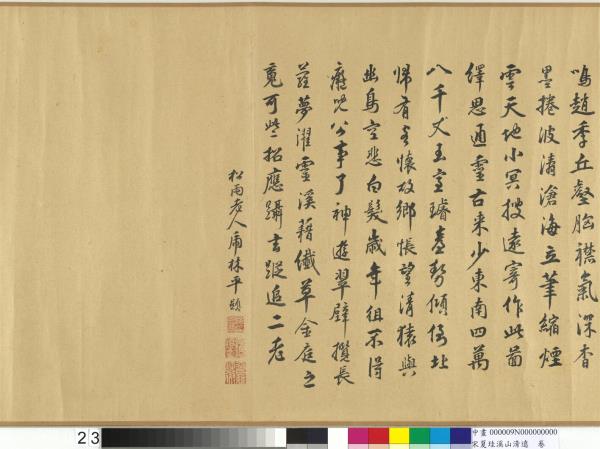 鳴趙季丘壑胸襟氣深杳
墨捲波濤滄海立筆縮煙
雲天地小冥搜遠寄作此啚
繹思通靈古來少東南四萬
八千丈玉室璿臺勢傾倒北
歸有客懷故鄉悵望清猿與
幽鳥空悲白髮歲年徂不得
癡兒公事了神遊翠壁攬長
蘿夢濯靈溪藉纖草金庭之
竟可些招應躡玄蹤追二老
松雨老人甫林平題
23
中畫000009N000000000
宋夏珪溪山清遠 卷